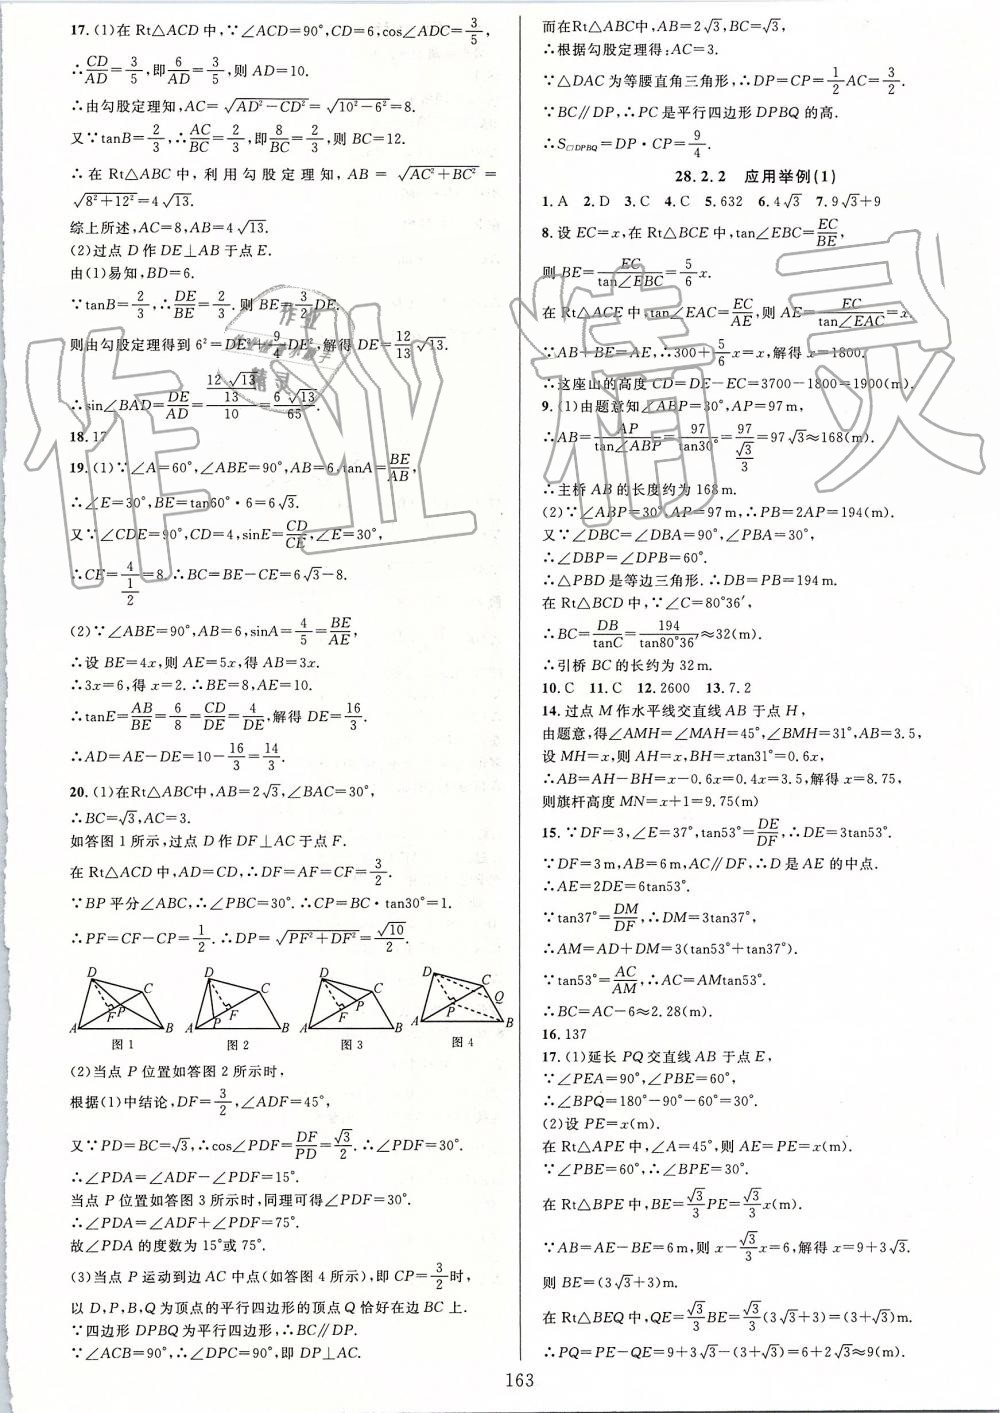 17. (1)在 Rt△ACD 中,∵∠ACD=90°,CD=6,cos∠ADC=3/5,
∴CD/AD=3/5,即6/AD=3/5,则 AD=10.
∴由勾股定理知,AC=√(AD²−CD²)=√(10²−6²)=8.
又∵tanB=2/3,∴AC/BC=2/3,即8/BC=2/3,则 BC=12.
∴在 Rt△ABC 中,利用勾股定理知,AB=√(AC²+BC²)=
√(8²+12²)=4√13.
综上所述,AC=8,AB=4√13.
(2)过点 D 作 DE⊥AB 于点 E.
由(1)易知,BD=6.
∵tanB=2/3,∴DE/BE=2/3.则 BE=3/2DE.
则由勾股定理得到 6²=DE²+9/4DE²,解得 DE=12/13√13.
∴sin∠BAD=DE/AD=(12√13/13)/10=6√13/65.
18. 17
19. (1)∵∠A=60°,∠ABE=90°,AB=6,tanA=BE/AB,
∴∠E=30°,BE=tan60°·6=6√3.
又∵∠CDE=90°,CD=4,sinE=CD/CE,∠E=30°,
∴CE=4/(1/2)=8.∴BC=BE−CE=6√3−8.
(2)∵∠ABE=90°,AB=6,sinA=4/5=BE/AE,
∴设 BE=4x,则 AE=5x,得 AB=3x.
∴3x=6,得 x=2.∴BE=8,AE=10.
∴tanE=AB/BE=6/8=CD/DE=4/DE,解得 DE=16/3.
∴AD=AE−DE=10−16/3=14/3.
20. (1)在Rt△ABC中,AB=2√3,∠BAC=30°,
∴BC=√3,AC=3.
如答图 1 所示,过点 D 作 DF⊥AC 于点 F.
在 Rt△ACD 中,AD=CD,∴DF=AF=CF=3/2.
∵BP 平分∠ABC,∴∠PBC=30°.∴CP=BC·tan30°=1.
∴PF=CF−CP=1/2.∴DP=√(PF²+DF²)=√10/2.
D C A F P B
D C A P F B
D C A P B
D C A P Q B
图 1 图 2 图 3 图 4
(2)当点 P 位置如答图 2 所示时,
根据(1)中结论,DF=3/2,∠ADF=45°,
又∵PD=BC=√3,∴cos∠PDF=DF/PD=√3/2.∴∠PDF=30°.
∴∠PDA=∠ADF−∠PDF=15°.
当点 P 位置如答图 3 所示时,同理可得∠PDF=30°.
∴∠PDA=∠ADF+∠PDF=75°.
故∠PDA 的度数为 15°或 75°.
(3)当点 P 运动到边 AC 中点(如答图 4 所示),即 CP=3/2时,
以 D,P,B,Q 为顶点的平行四边形的顶点 Q 恰好在边 BC 上.
∵四边形 DPBQ 为平行四边形,∴BC∥DP.
∵∠ACB=90°,∴∠DPC=90°,即 DP⊥AC.
而在Rt△ABC中,AB=2√3,BC=√3,
∴根据勾股定理得:AC=3.
∵△DAC 为等腰直角三角形,∴DP=CP=1/2AC=3/2.
∵BC∥DP,∴PC 是平行四边形 DPBQ 的高.
∴S□DPBQ=DP·CP=9/4.
28.2.2 应用举例(1)
1. A 2. D 3. C 4. C 5. 632 6. 4√3 7. 9√3+9
8. 设 EC=x,在 Rt△BCE 中,tan∠EBC=EC/BE,
则 BE=EC/tan∠EBC=5/6x.
在 Rt△ACE 中,tan∠EAC=EC/AE,则 AE=EC/tan∠EAC=x.
∵AB+BE=AE,∴300+5/6x=x,解得 x=1800.
∴这座山的高度 CD=DE−EC=3700−1800=1900(m).
9. (1)由题意知∠ABP=30°,AP=97 m,
∴AB=AP/tan∠ABP=97/tan30°=97/(√3/3)=97√3≈168(m).
∴主桥 AB 的长度约为 168 m.
(2)∵∠ABP=30°,AP=97 m,∴PB=2AP=194(m).
又∵∠DBC=∠DBA=90°,∠PBA=30°,
∴∠DBP=∠DPB=60°.
∴△PBD 是等边三角形.∴DB=PB=194 m.
在 Rt△BCD 中,∵∠C=80°36′,
∴BC=DB/tanC=194/tan80°36′≈32(m).
∴引桥 BC 的长约为 32 m.
10. C 11. C 12. 2600 13. 7.2
14. 过点 M 作水平线交直线 AB 于点 H,
由题意,得∠AMH=∠MAH=45°,∠BMH=31°,AB=3.5,
设 MH=x,则 AH=x,BH=xtan31°=0.6x,
∴AB=AH−BH=x−0.6x=0.4x=3.5,解得 x=8.75,
则旗杆高度 MN=x+1=9.75(m)
15. ∵DF=3,∠E=37°,tan53°=DE/DF,∴DE=3tan53°.
∵DF=3 m,AB=6 m,AC∥DF,∴D 是 AE 的中点.
∴AE=2DE=6tan53°.
∵tan37°=DM/DF,∴DM=3tan37°,
∴AM=AD+DM=3(tan53°+tan37°).
∵tan53°=AC/AM,∴AC=AMtan53°.
∴BC=AC−6≈2.28(m).
16. 137
17. (1)延长 PQ 交直线 AB 于点 E,
∵∠PEA=90°,∠PBE=60°,
∴∠BPQ=180°−90°−60°=30°.
(2)设 PE=x(m).
在 Rt△APE 中,∠A=45°,则 AE=PE=x(m).
∵∠PBE=60°,∴∠BPE=30°.
在 Rt△BPE 中,BE=√3/3PE=√3/3x(m).
∵AB=AE−BE=6 m,则 x−√3/3x=6,解得 x=9+3√3.
则 BE=(3√3+3)m.
在 Rt△BEQ 中,QE=√3/3BE=√3/3(3√3+3)=(3+√3)m.
∴PQ=PE−QE=9+3√3−(3+√3)=6+2√3≈9(m).
163
作业精灵